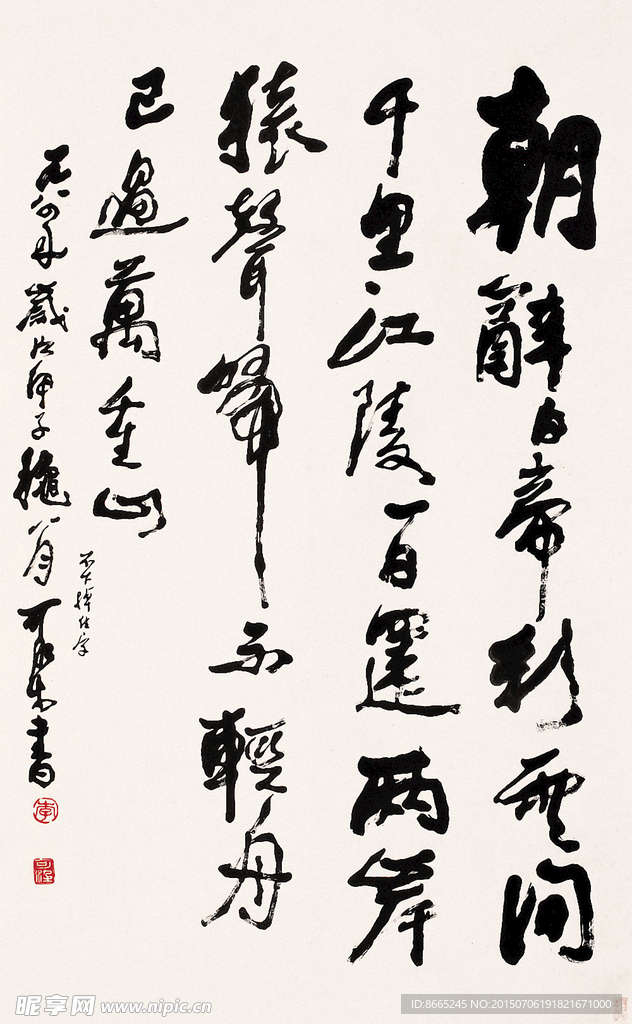 朝辭白帝彩雲間
千里江陵一日還兩岸
猿聲啼不輕舟
已過萬重山
不下掉住字
一九八四年歲次甲子穐八月可染書
李
昵享网 www.nipic.cn
ID:8665245 NO:20150706191821671000